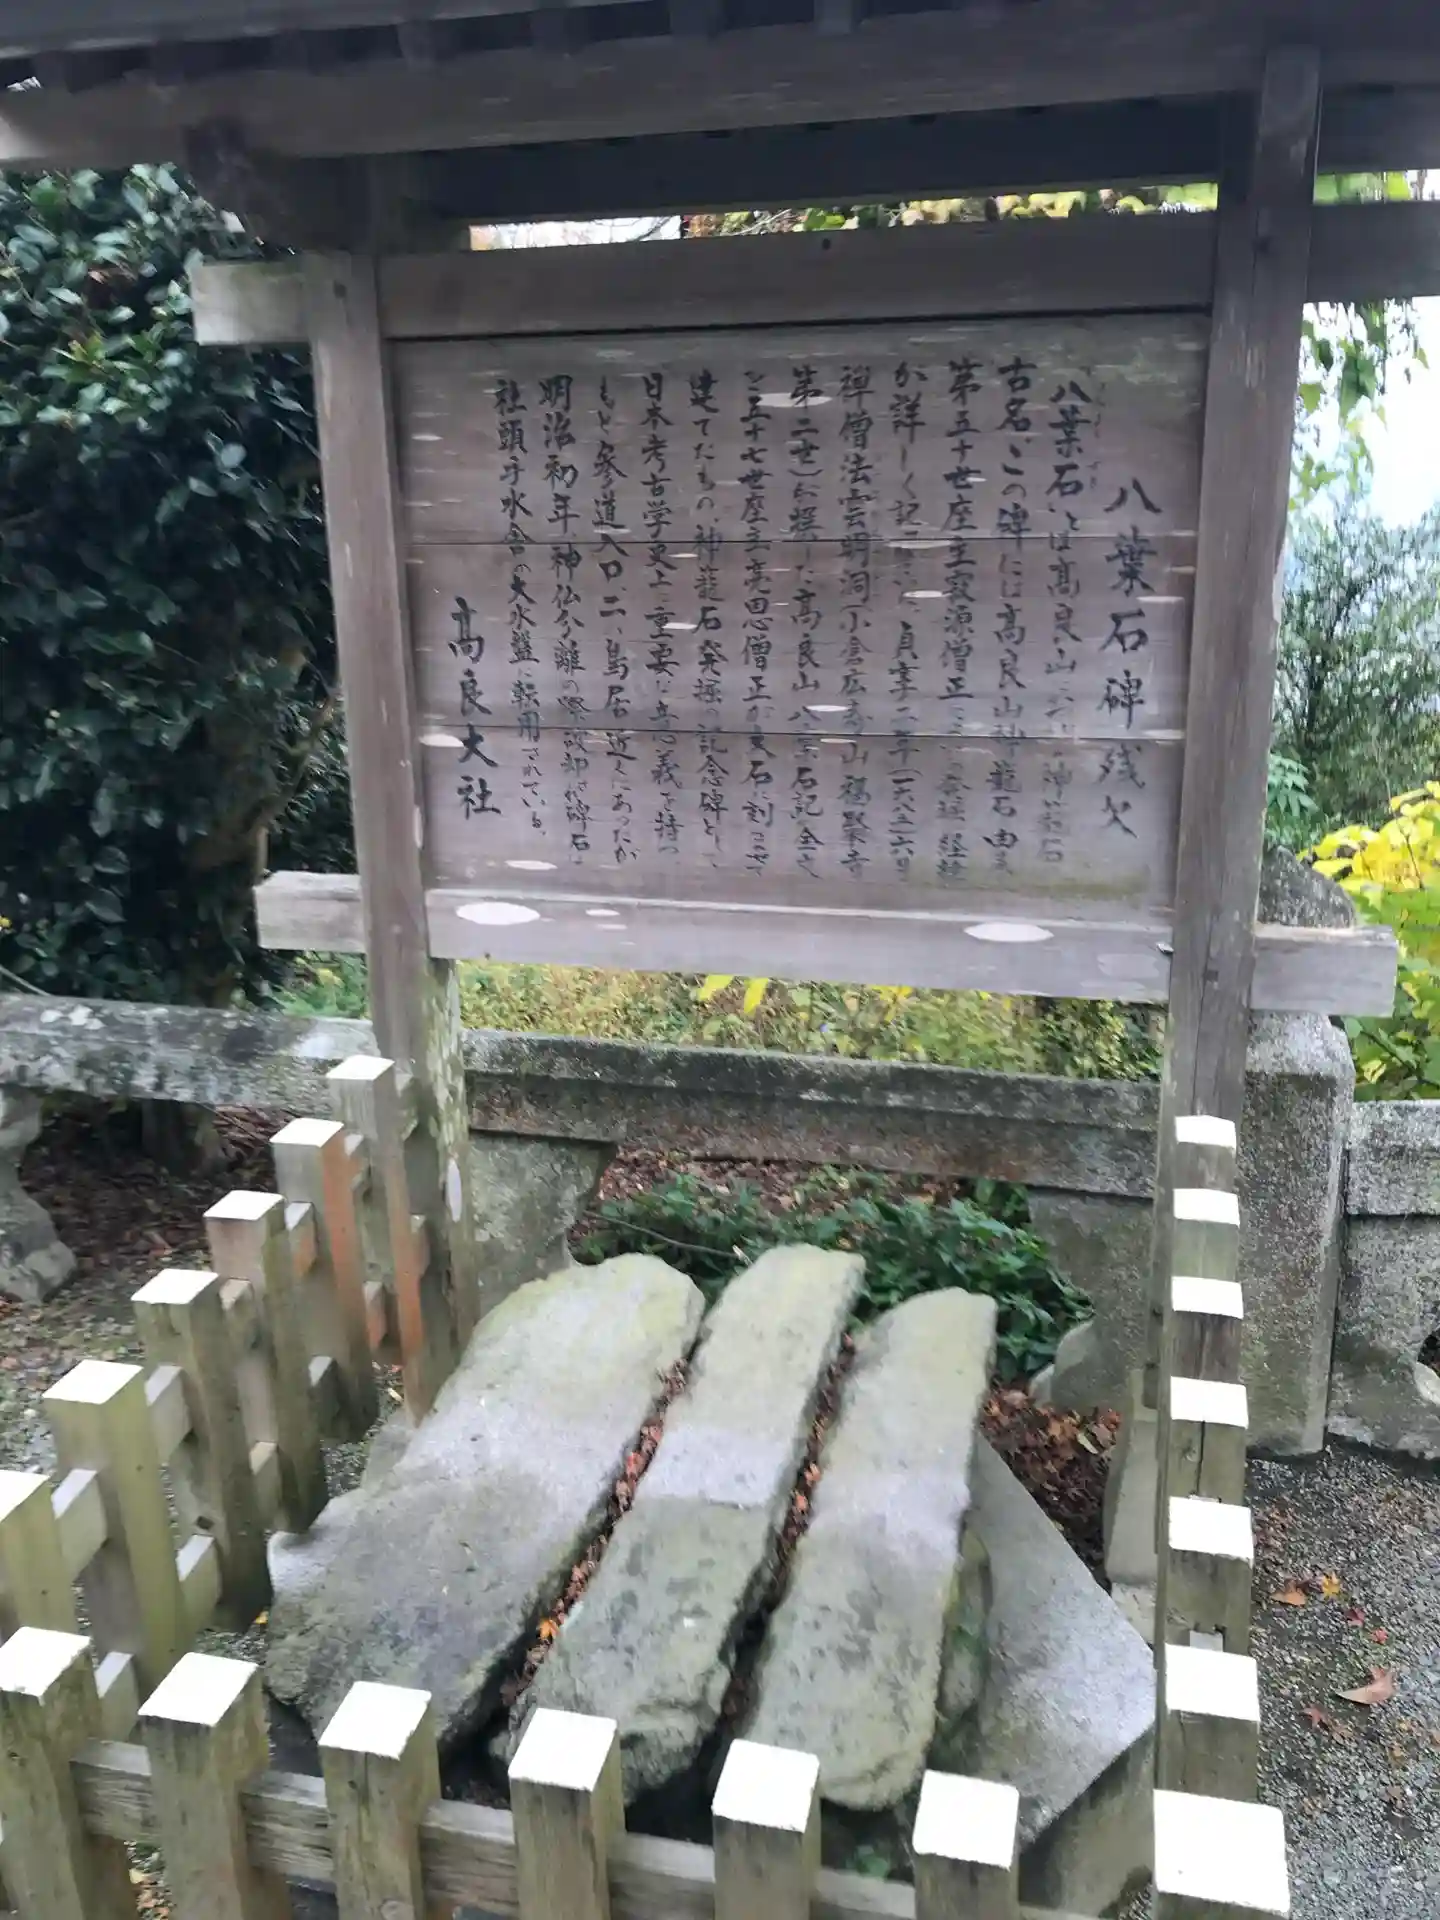 八葉石碑残欠
八葉石とは高良山 神籠石
古名、この碑には高良山神籠石由来
第五十世座主寂源僧正 発掘 経緯
が詳しく記 、貞享二年(一六八五)六月
禅僧法雲明洞(小倉広寿山福聚寺
第二世)が撰した高良山八葉石記全文
を五十七世座主亮恩僧正が 石に刻ませて
建てたもの、神籠石発掘の記念碑として、
日本考古学史上に重要な意義を持つ。
もと参道入口、二ノ鳥居近くにあったが
明治初年、神仏分離の際破却され碑石は
社頭手水舎の大水盤に転用されている。
高良大社